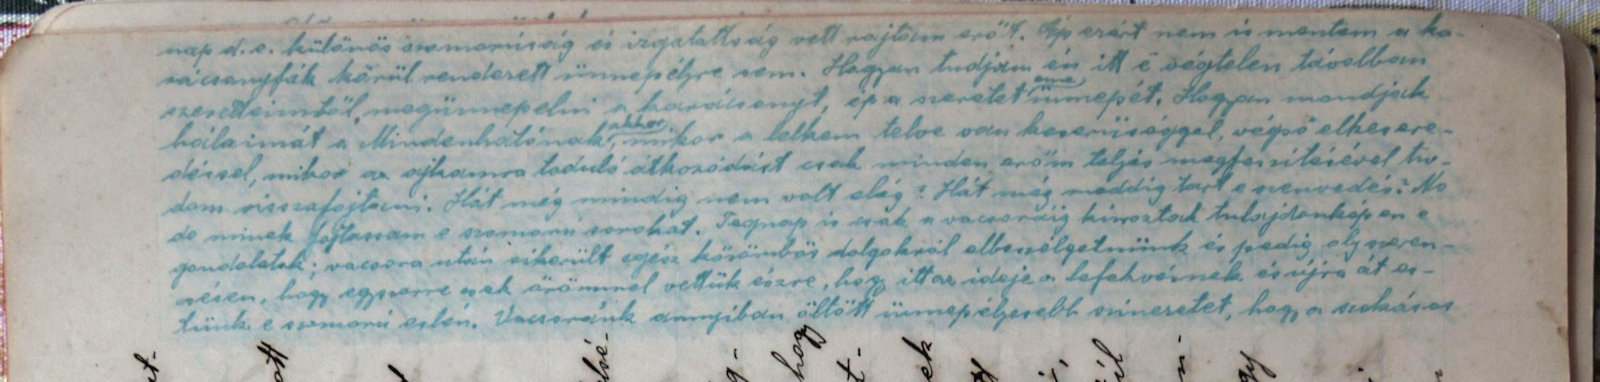 nap d. e. különös szomorúság és izgatottság vett rajtam erőt. Ép ezért nem is mentem a ka-
rácsonyfák körül rendezett ünnepélyre sem. Hogyan tudjam én itt e végtelen távolban
szeretteimtől, megünnepelni a karácsonyt, ép a szeretet eme ünnepét. Hogyan mondjak
hálaimát a Mindenhatónak akkor, mikor a lelkem telve van keserűséggel, végső elkesere-
déssel, mikor az ajkamra toduló átkozódást csak minden erőm teljes megfeszítésével tu-
dom visszafojtani. Hát még mindig nem volt elég? Hát még meddig tart e szenvedés? No
de minek folytassam e szomorú sorokat. Tegnap is csak a vacsoráig kínoztak tulajdonképen e
gondolatok; vacsora után sikerült egész közömbös dolgokról elbeszélgetnünk és pedig oly szeren-
csésen, hogy egyszerre csak örömmel vettük észre, hogy itt az ideje a lefekvésnek és újra át es-
tünk e szomorú estén. Vacsoránk annyiban öltött ünnepélyesebb színezetet, hogy a szokásos
at-
ott
lsé-
g-
hogy
t-
ek
ül
n-
gy